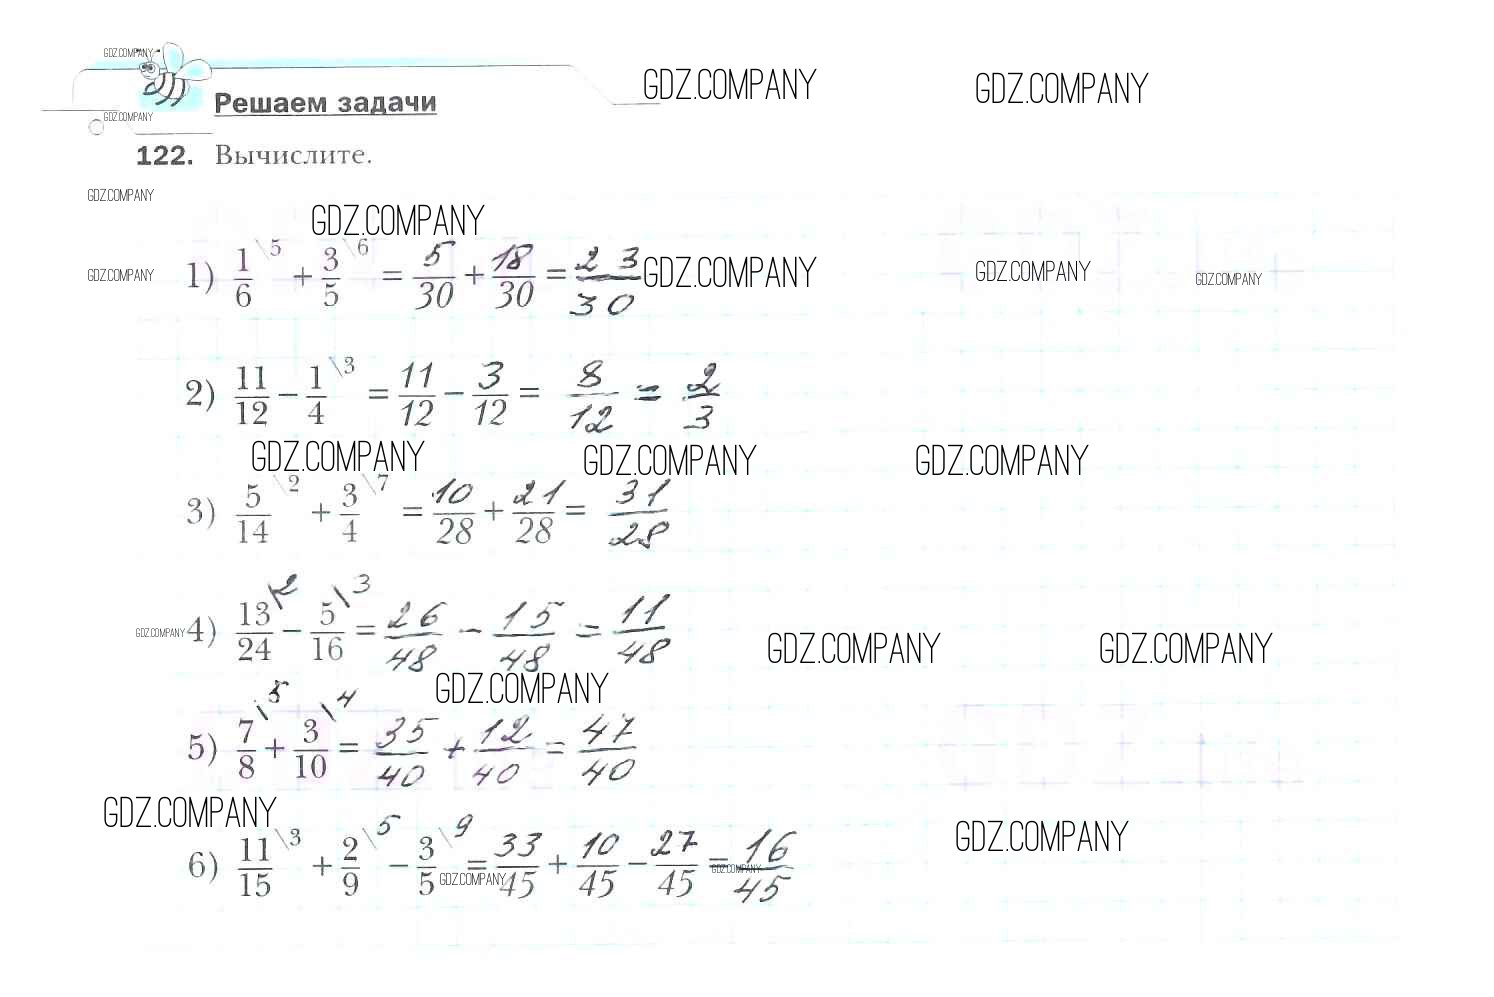 GDZ.COMPANY
GDZ.COMPANY GDZ.COMPANY
Решаем задачи
GDZ.COMPANY
122. Вычислите.
GDZ.COMPANY
GDZ.COMPANY
1) 1/6 \5 + 3/5 \6 = 5/30 + 18/30 = 23/30
GDZ.COMPANY GDZ.COMPANY GDZ.COMPANY GDZ.COMPANY
2) 11/12 − 1/4 \3 = 11/12 − 3/12 = 8/12 = 2/3
GDZ.COMPANY GDZ.COMPANY GDZ.COMPANY
3) 5/14 \2 + 3/4 \7 = 10/28 + 21/28 = 31/28
4) 13/24 \2 − 5/16 \3 = 26/48 − 15/48 = 11/48
GDZ.COMPANY GDZ.COMPANY GDZ.COMPANY
GDZ.COMPANY
5) 7/8 \5 + 3/10 \4 = 35/40 + 12/40 = 47/40
GDZ.COMPANY GDZ.COMPANY
6) 11/15 \3 + 2/9 \5 − 3/5 \9 = 33/45 + 10/45 − 27/45 = 16/45
GDZ.COMPANY GDZ.COMPANY